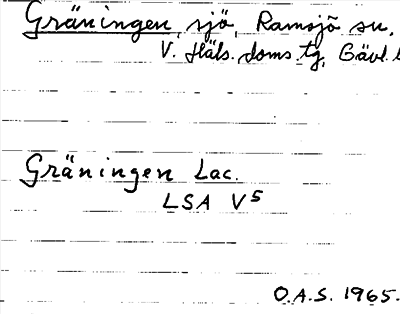 Gräningen, sjö, Ramsjö sn,
V. Häls. doms. tg, Gävl.
Gräningen Lac.
LSA V5
O.A.S. 1965.